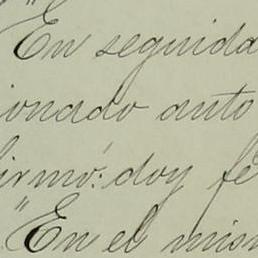 "En seguida
ionado auto
irmó: doy fé
"En el mism